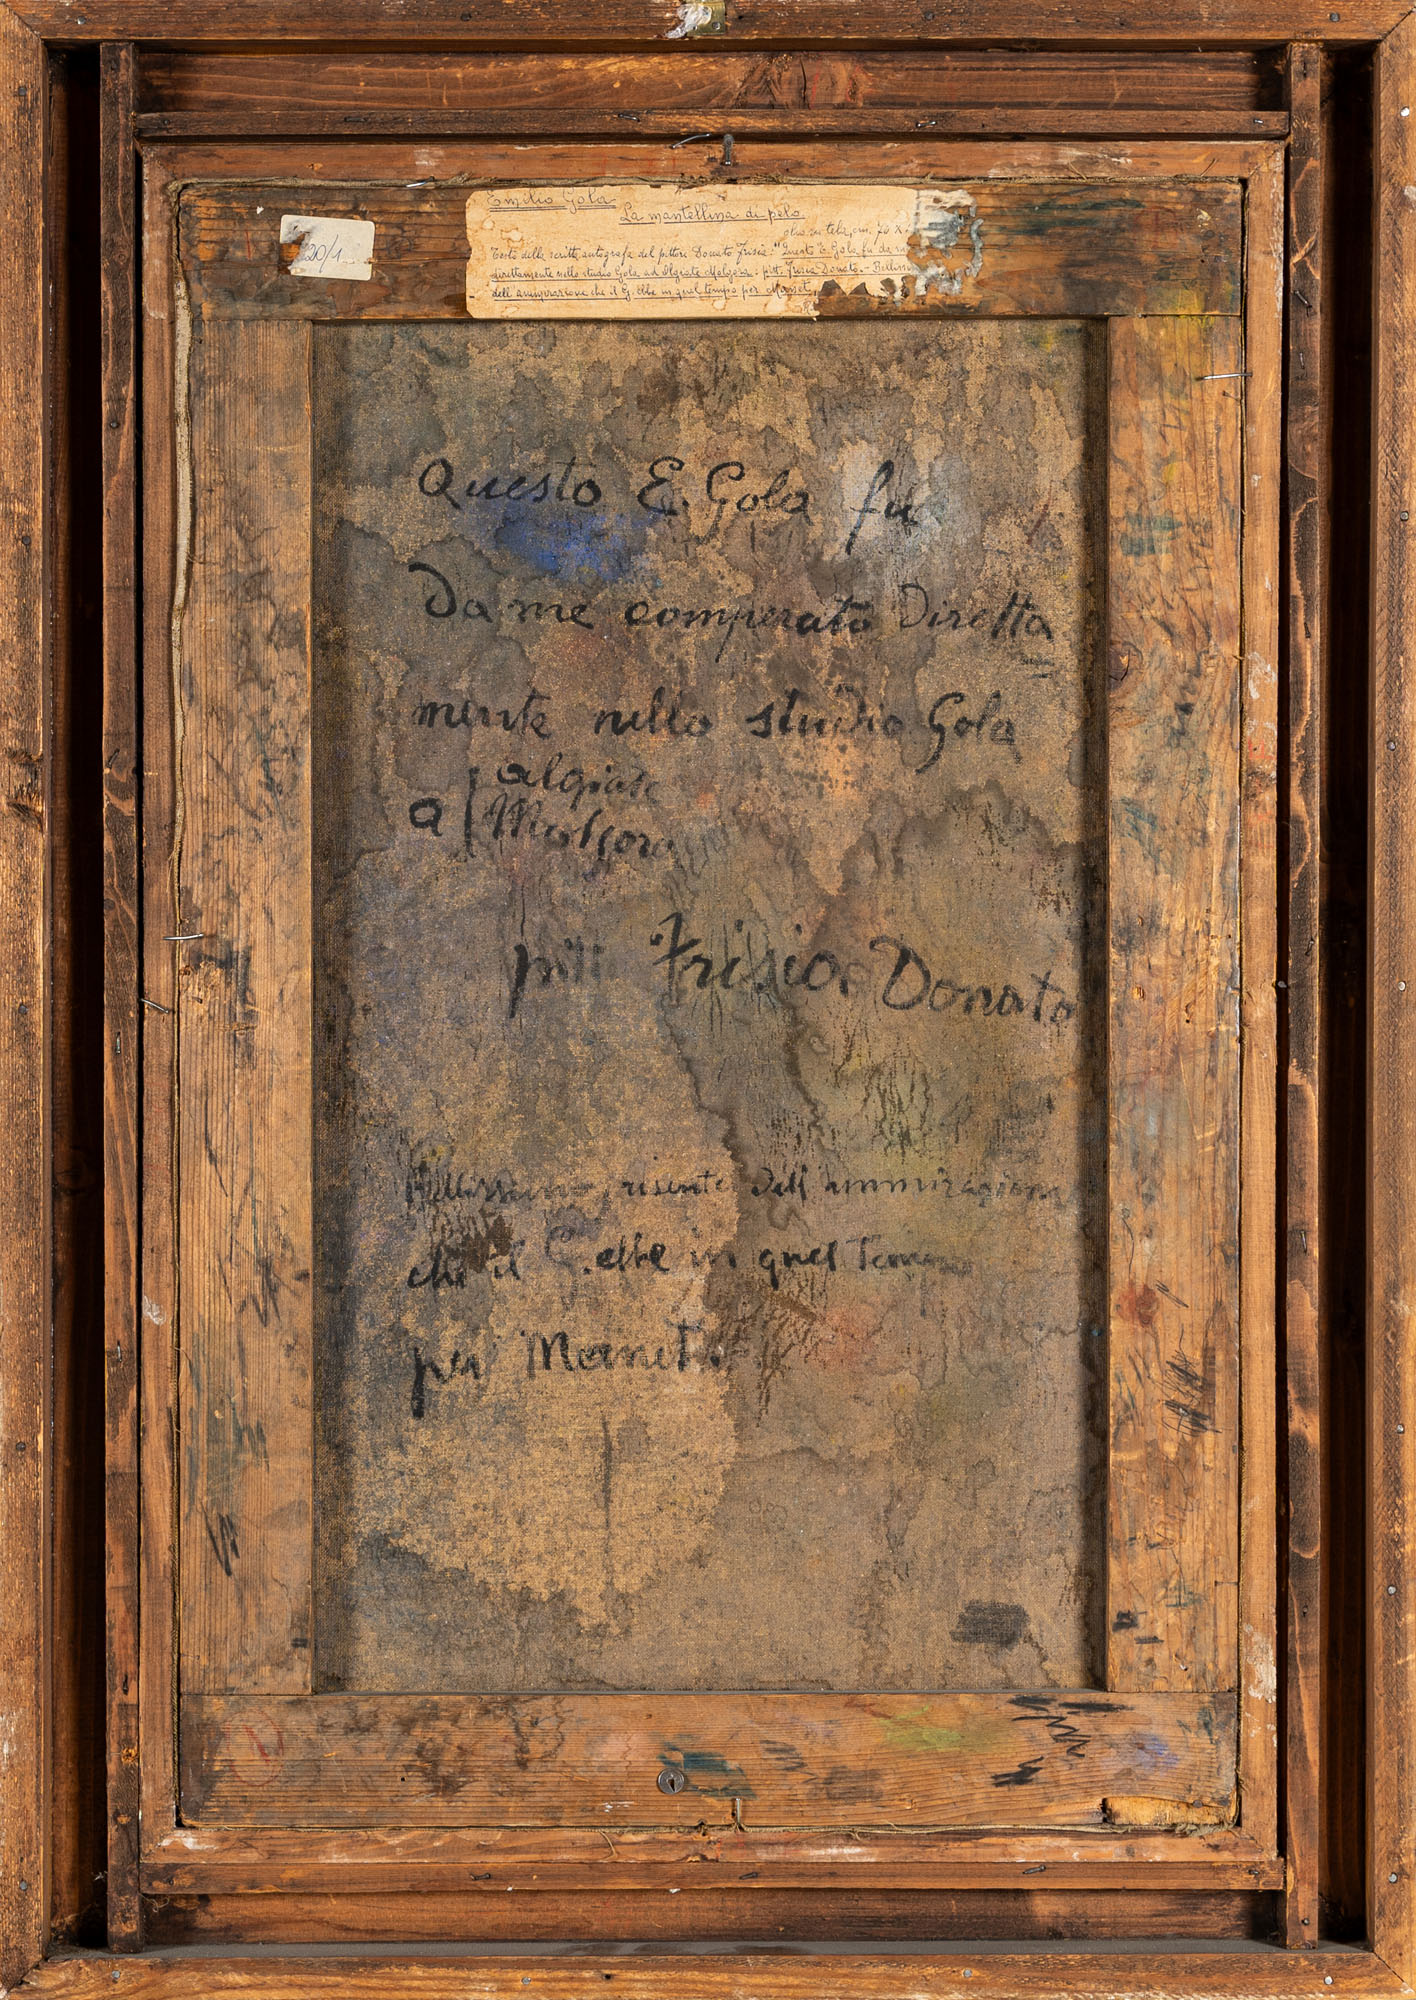 20/1
Emilio Gola
La mantellina di pelo.
olio su tela, cm. 70 x
Testo della scritta autografa del pittore Donato Frisia: "Questo E. Gola fu da m
direttamente nello studio Gola ad Olgiate Molgora: pitt. Frisia Donato. - Bellissi
dell'ammirazione che il G. ebbe in quel tempo per
Questo E. Gola fu
Da me comperato Diretta
mente nello studio Gola
a olgiate
Molgora
pitt Frisia Donato
Bellissimo, risente Dell'ammirazione
che il G. ebbe in quel Tempo
per
1